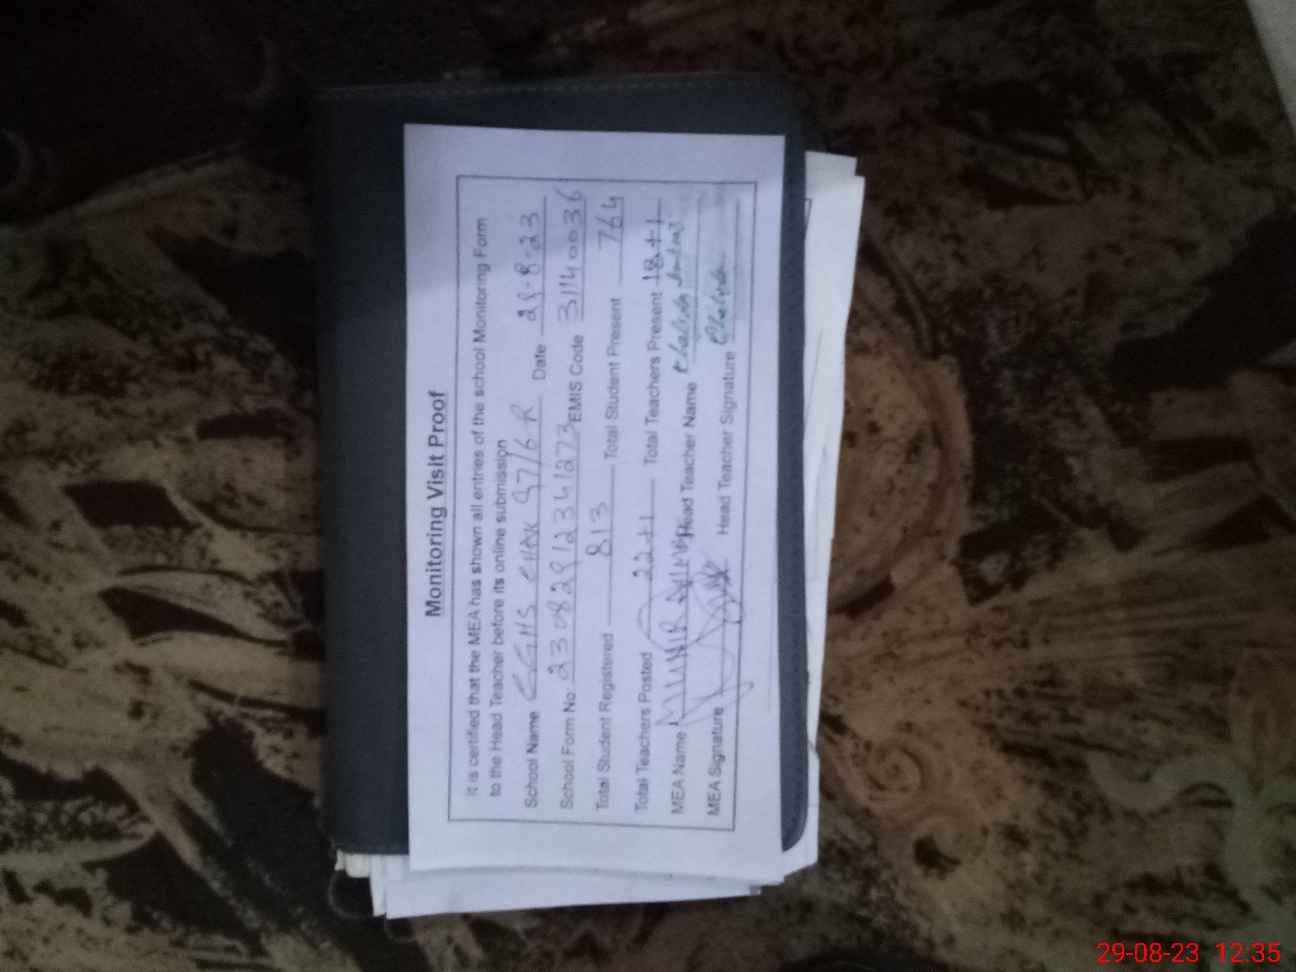 Monitoring Visit Proof
It is certified that the MEA has shown all entries of the school Monitoring Form
to the Head Teacher before its online submission
School Name GGHS CHAK 97/6 R Date 29-8-23
School Form No 23082912341273 EMIS Code 31140036
Total Student Registered 813 Total Student Present 764
Total Teachers Posted 22+1 Total Teachers Present 18+1
MEA Name MUNIR Head Teacher Name Khalida
MEA Signature Head Teacher Signature Khalida
29-08-23 12:35